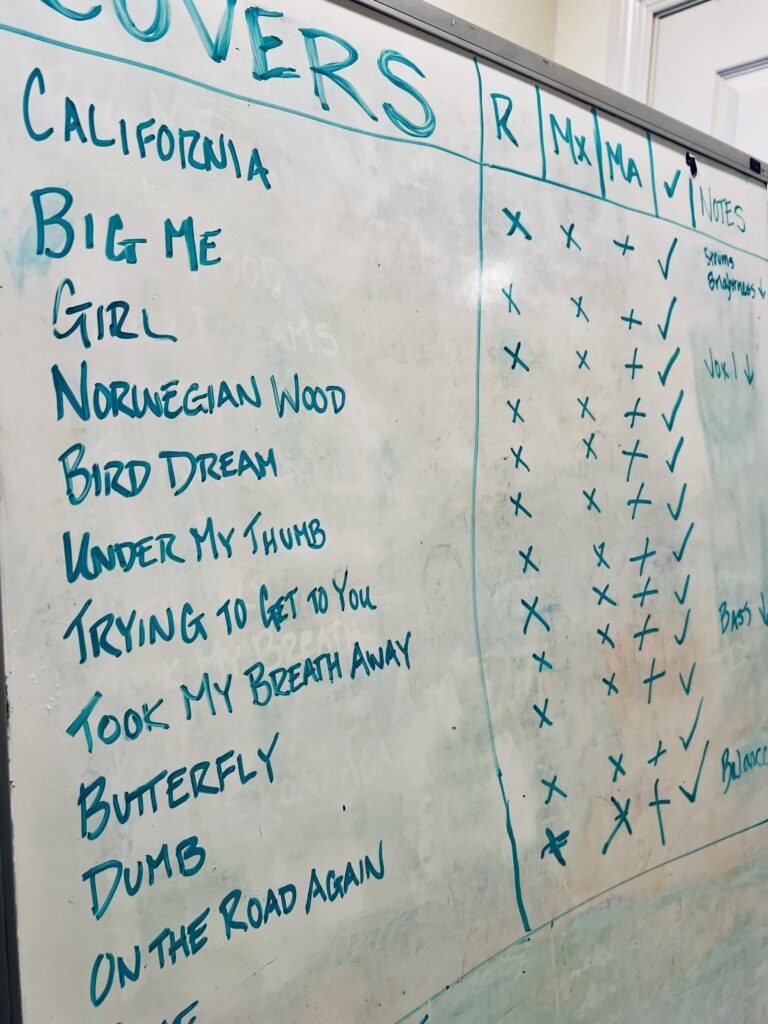 COVERS R MX MA ✓ NOTES
CALIFORNIA X X + ✓ Strums
Brightness ↓
BIG ME X X + ✓
GIRL X X + ✓ Vox 1 ↓
NORWEGIAN WOOD X X + ✓
BIRD DREAM X X + ✓
UNDER MY THUMB X X + ✓
TRYING TO GET TO YOU X X + ✓
TOOK MY BREATH AWAY X X + ✓ BASS ↓
BUTTERFLY X X + ✓
DUMB X X + ✓
ON THE ROAD AGAIN X X + ✓ Balance